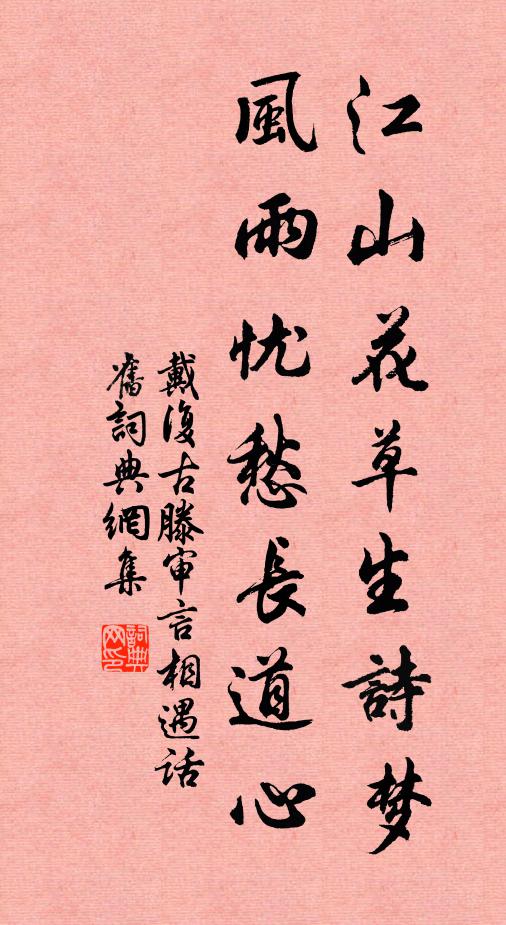 江山花草生詩梦
風雨忧愁長道心
戴復古滕审言相遇话
舊詞典網集
詞典
网印